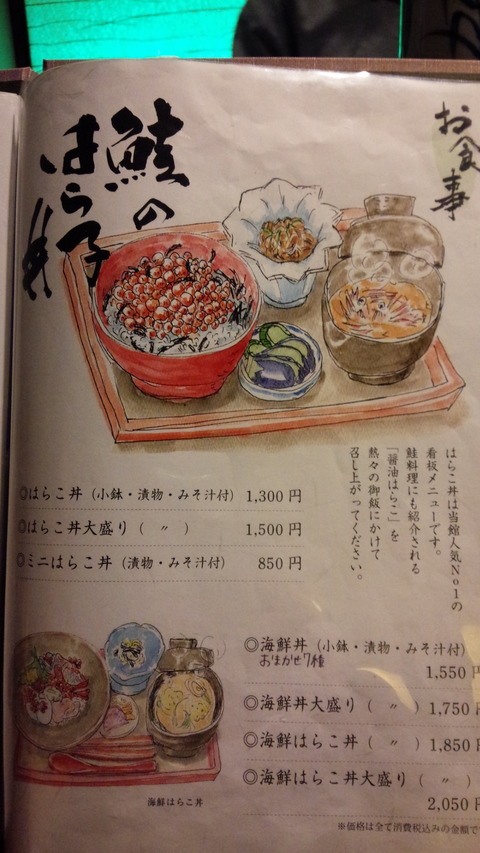 お食事
鮭の
はら子
丼
はらこ丼は当館人気No1の
看板メニューです。
鮭料理にも紹介される
「醤油はらこ」を
熱々の御飯にかけて
召し上がってください。
◎はらこ丼（小鉢・漬物・みそ汁付） 1,300円
◎はらこ丼大盛り（　〃　） 1,500円
◎ミニはらこ丼（漬物・みそ汁付） 850円
◎海鮮丼（小鉢・漬物・みそ汁付）
おまかせ7種
1,550円
◎海鮮丼大盛り（　〃　） 1,750円
◎海鮮はらこ丼（　〃　） 1,850円
◎海鮮はらこ丼大盛り（　〃　）
2,050円
海鮮はらこ丼
※価格は全て消費税込みの金額で